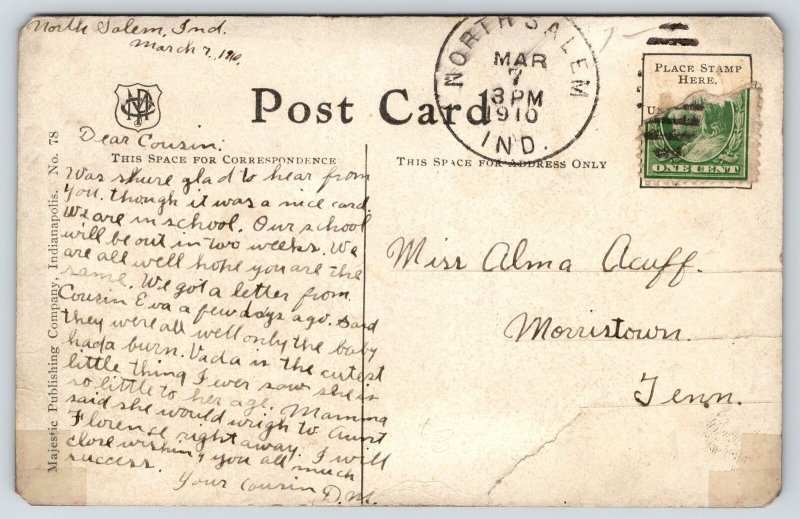 North Salem, Ind.
March 7, 190.
NORTH SALEM
MAR
7
3 PM
1910
IND.
PLACE STAMP
HERE.
ONE CENT
Post Card
THIS SPACE FOR CORRESPONDENCE
THIS SPACE FOR ADDRESS ONLY
Majestic Publishing Company, Indianapolis. No. 78
Dear Cousin;
Was shure glad to hear from
you. though it was a nice card
We are in school. Our school
will be out in two weeks. We
are all well hope you are the
same. We got a letter from
Cousin Eva a few days ago. Said
they were all well only the baby
had a burn. Vada is the cutest
little thing I ever saw she is
so little to her age. Mamma
said she would wrigh to Aunt
Florence right away. I will
close wishing you all much
success.
Your Cousin D.M.
Miss Alma Acuff.
Morristown.
Tenn.